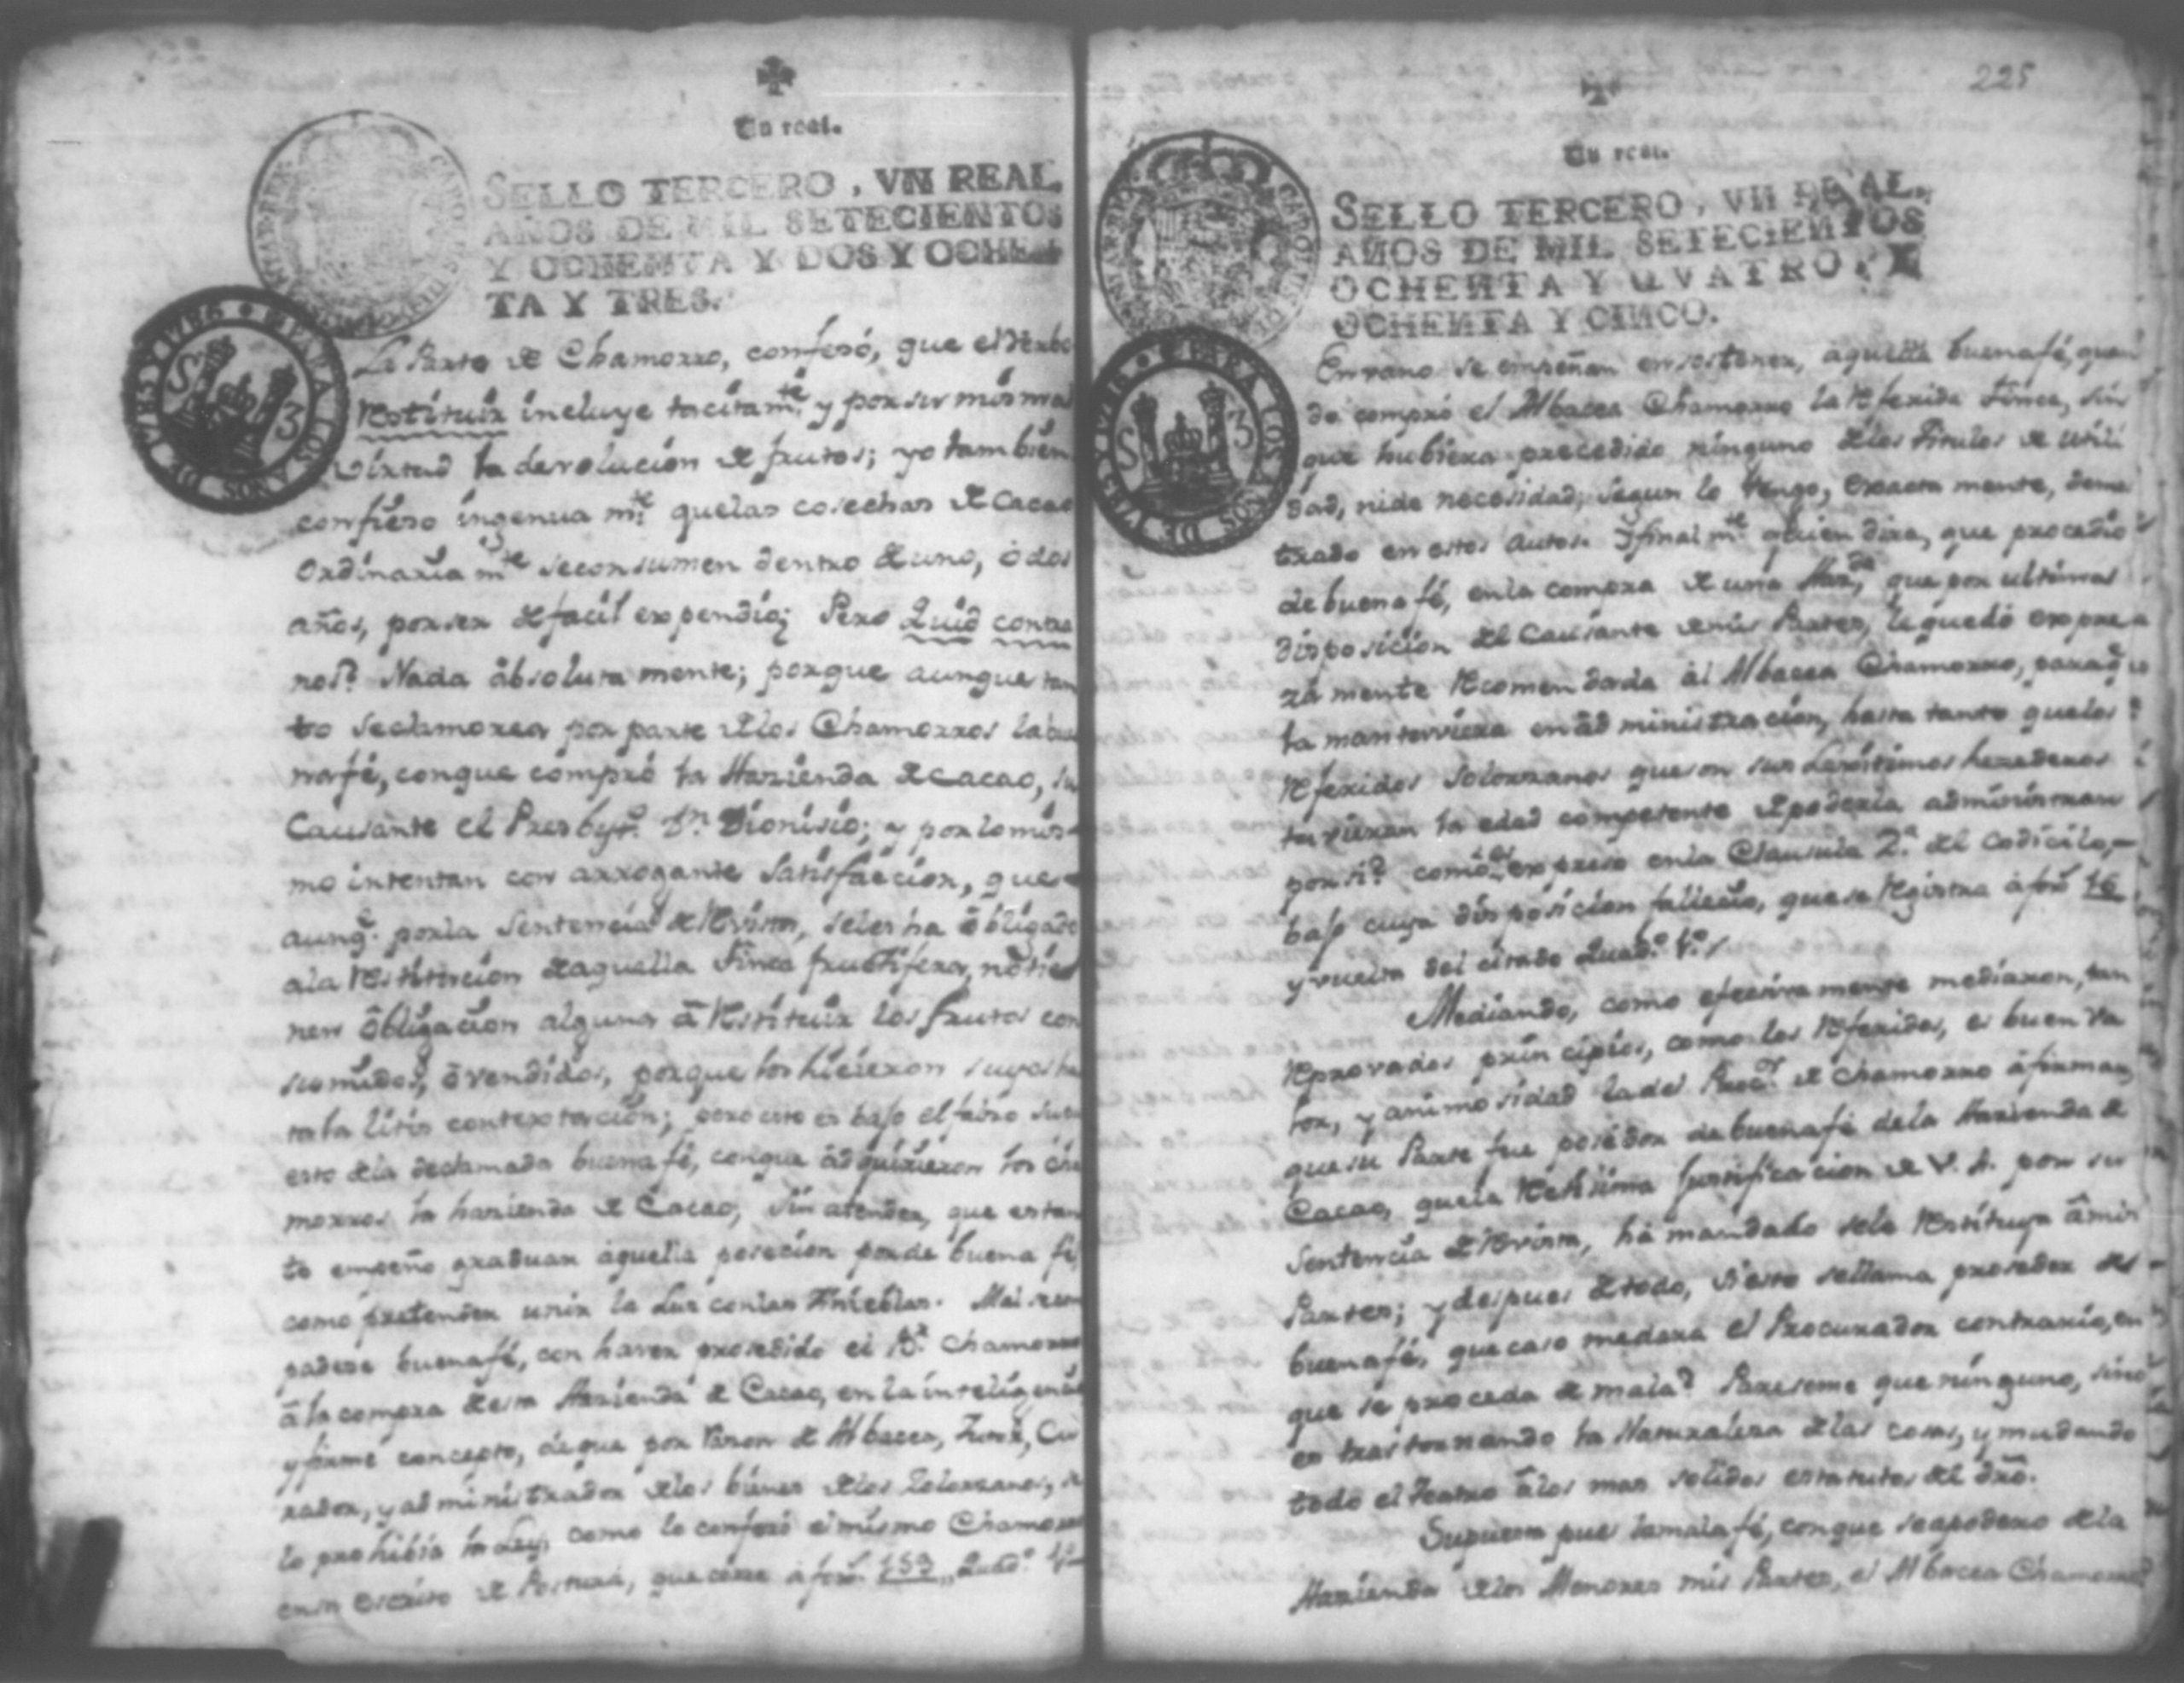 Un real.
SELLO TERCERO, VN REAL
AÑOS DE MIL SETECIENTOS
Y OCHENTA Y DOS Y OCHEN
TA Y TRES.
La Parte de Chamorro, confesó, que el Verbo
Restituir incluye tacitam.te y por su misma
Virtud la devolucion de frutos; yo tambien
confieso ingenua m.te que las cosechas de Cacao
Ordinaria m.te se consumen dentro de uno, ó dos
años, por ser de facil expendio; Pero Quid contra
nos? Nada absoluta mente; porque aunque tan
to se clamorea por parte de los Chamorros la bue
na fé, con que compró la Hazienda de Cacao, su
Causante el Presbyt.o D.n Dionisio; y por lo mis
mo intentan con arrogante Satisfaccion, que
aunq.e por la Sentencia de Revista, se les ha obligado
a la Restitucion de aquella Finca fructifera, no tie
nen obligacion alguna á Restituir los frutos con
sumidos, ó vendidos, porque los hicieron suyos has
ta la litis contextacion; pero esto es bajo el falso su
esto de la declamada buena fé, con que adquirieron los Cha
morros la hazienda de Cacao; sin atender, que es tan
to empeño graduar aquella posecion por de buena fé,
como pretender unir la Luz con las Tinieblas. Mal se com
padece buena fé, con haver procedido el P.e Chamorro
á la compra de esta Hazienda de Cacao, en la inteligencia
y firme concepto, de que por Razon de Albacea, Tutor, Cu
rador, y administrador de los bienes de los Solorzanos, se
lo prohibia la Ley, como lo confesó el mismo Chamorro
en su escrito de Postura, que corre á fox.s 159 Quad.o 1.o
225
Un real.
SELLO TERCERO, VN REAL.
AÑOS DE MIL SETECIENTOS
OCHENTA Y QVATRO, Y
OCHENTA Y CINCO.
En vano se empeñan en sostener, aquella buena fé, quan
do compró el Albacea Chamorro la Referida Finca, sin
que hubiera precedido ninguno de los Titulos de utili
dad, ni de necesidad, segun lo tengo, exacta mente, demos
trado en estos autos. Y final m.te quien dira, que procedió
de buena fé, en la compra de una Haz.da que por ultima
disposicion del Causante de mis Partes, le quedó expre
sa mente Recomendada al Albacea Chamorro, para q.e
la mantuviera en administracion, hasta tanto que los
Referidos Solorzanos que son sus Lexitimos herederos
tuvieran la edad competente de poderla administrar
por si? como expreso en la Clausula 2.a del Codicilo,
bajo cuya disposicion fallecio, que se Registra á fox.s 16
y vuelta del citado Quad.o 1.o
Mediando, como efectiva mente mediaron, tan
Reprovados principios, como los Referidos, es buen va
lor, y animosidad la del Proc.or de Chamorro afirmar,
que su Parte fue posedor de buena fé de la Hazienda de
Cacao, que la Rectisima justificacion de V. A. por su
Sentencia de Revista, há mandado se le Restituya á mis
Partes; y despues de todo, si esto se llama proceder de
buena fé, que caso me dara el Procurador contrario, en
que se proceda de mala? Pareseme que ninguno, sino
es trastornando la Naturaleza de las cosas, y mudando
todo el Teatro á los mas solidos estatutos del dro.
Supuesta pues la mala fé, con que se apodero de la
Hazienda de los Menores mis Partes, el Albacea Chamorro